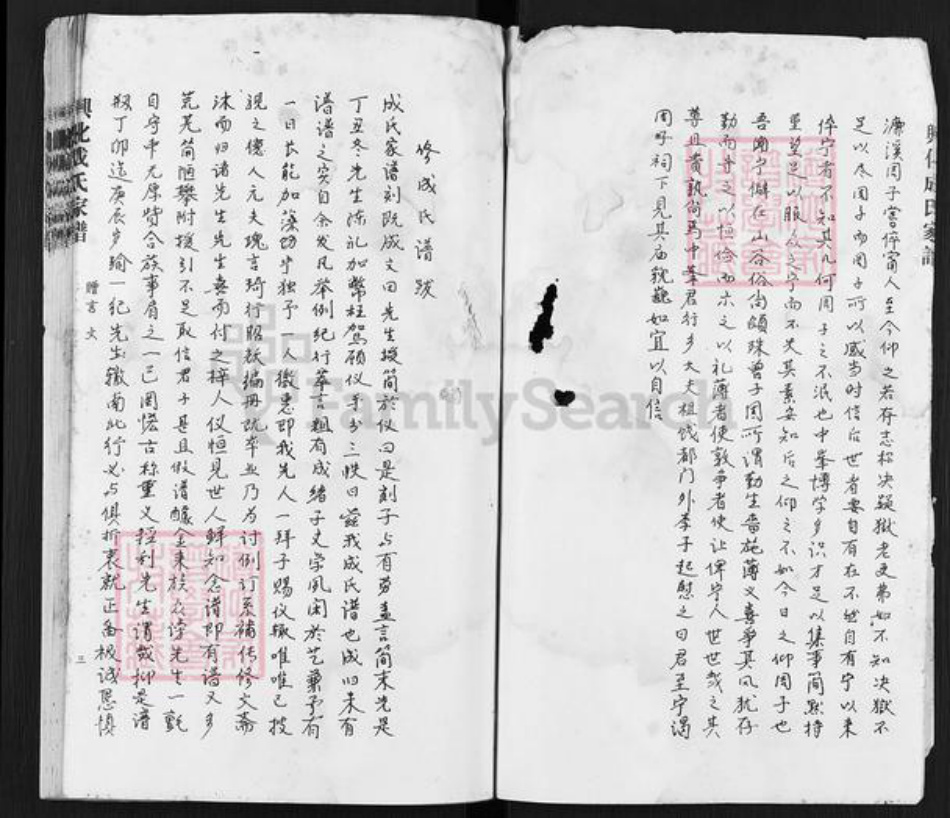 濂溪周子嘗倅甯人至今仰之若存志称决疑獄老吏弗如不知决獄不
足以尽周子而周子所以感当时信后世者要自有在不然自有宁以来
倅宁者不知其几何周子之不泯也中峯博学多识才足以集事简默持
重望足以服众之宁而不失其素安知后之仰之不如今日之仰周子也
吾闻宁僻在山谷俗尚頗殊曾子固所谓勤生啬施薄义喜爭其风犹存
勤而节之以恒俭而示之以礼薄者使敦争者使让俾宁人世世戴之其
尊且贵孰尚焉中峯君行乡大夫祖饯都门外李子起慰之曰君至宁谒
周子祠下见其庙貌巍如宜以自信
修成氏谱跋
成氏家谱刻既成文曰先生授简於仪曰是刻子与有劳盍言简末先是
丁丑冬先生陈礼加幣枉駕顾仪手书三帙曰兹我成氏谱也成旧未有
谱谱之实自余发凡举例纪行萃言粗有成緒子史学风闲於艺兼予有
一日长能加藻功半独予一人徽惠即我先人一拜子赐仪辄唯唯已技
視之僡人元夫瑰言琦行昭揺编冊既卒业乃为讨例订系補传修文斋
沐而归诸先生先生喜而付之梓人仪恒见世人鲜知念谱即有谱又多
荒芜简陋攀附援引不足取信君子甚且假谱醵金来族衣淬先生一氈
自守中无厚赀合族事眉之一己罔惜古称重义轻利先生谓哉抑是谱
叙丁卯迄庚辰岁踰一纪先生辙南北行必与俱折衷就正备极诚恳慎
赠言文
三
興化成氏家谱
興化成氏家譜
FamilySearch